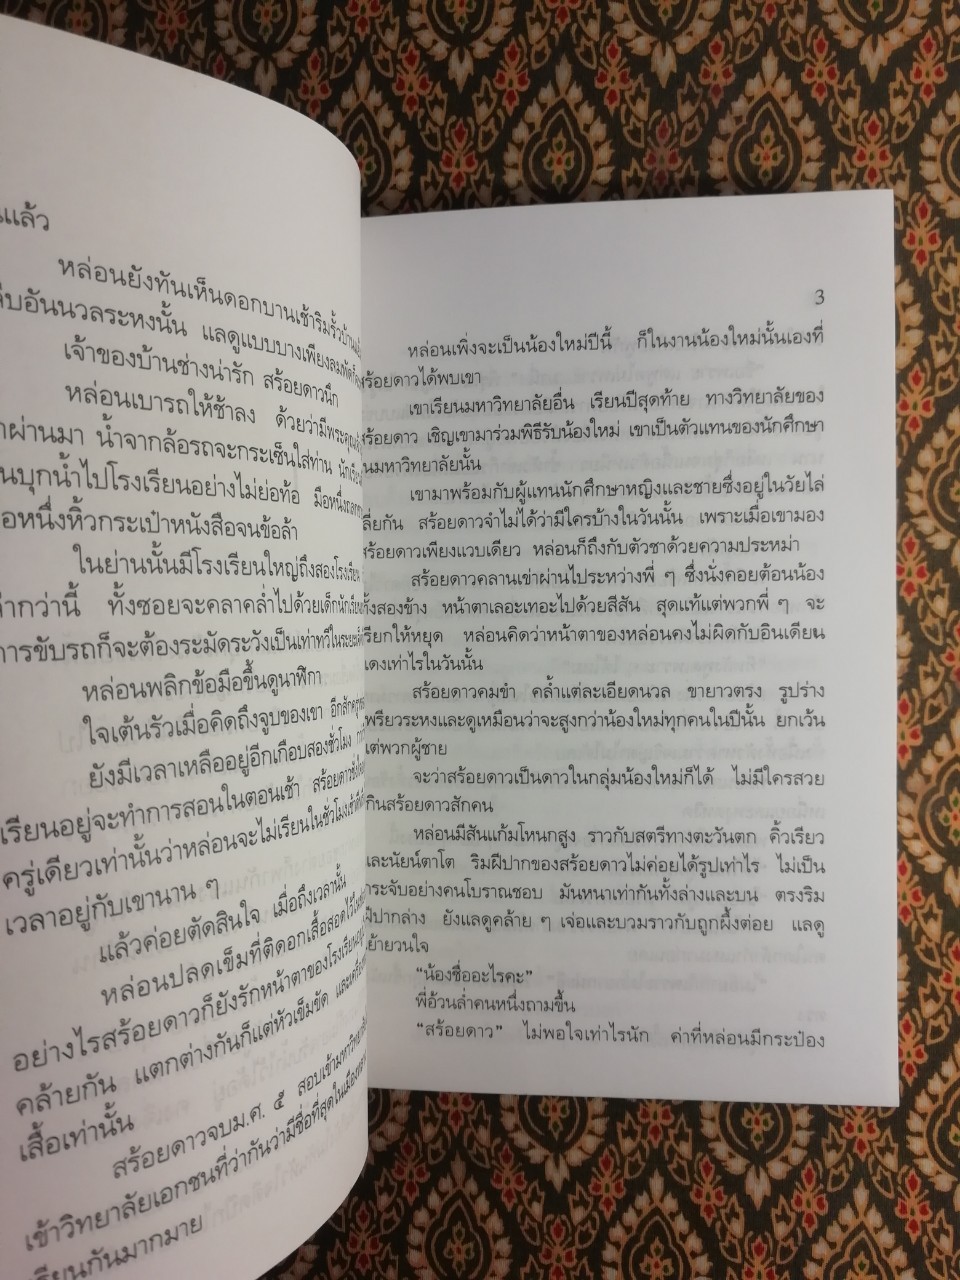 แล้ว
หล่อนยังทันเห็นดอกบานเช้าริมรั้วบ้าน
อันนวลระหงนั้น แลดูแบบบางเพียงลมพัด
เจ้าของบ้านช่างน่ารัก สร้อยดาวนึก
หล่อนเบารถให้ช้าลง ด้วยว่ามีพระคุณเจ้า
ผ่านมา น้ำจากล้อรถจะกระเซ็นใส่ท่าน นักเรียน
บุกน้ำไปโรงเรียนอย่างไม่ย่อท้อ มือหนึ่ง
หนึ่งหิ้วกระเป๋าหนังสือจนข้อล้า
ในย่านนั้นมีโรงเรียนใหญ่ถึงสองโรงเรียน
กว่านี้ ทั้งซอยจะคลาคล่ำไปด้วยเด็กนักเรียน
การขับรถก็จะต้องระมัดระวังเป็นเท่าทวีในระยะ
หล่อนพลิกข้อมือขึ้นดูนาฬิกา
ใจเต้นรัวเมื่อคิดถึงจูบของเขา อีกสักครู่
ยังมีเวลาเหลืออยู่อีกเกือบสองชั่วโมง
เรียนอยู่จะทำการสอนในตอนเช้า สร้อยดาว
ครู่เดียวเท่านั้นว่าหล่อนจะไม่เรียนในชั่วโมงเช้า
เวลาอยู่กับเขานาน ๆ
แล้วค่อยตัดสินใจ เมื่อถึงเวลานั้น
หล่อนปลดเข็มที่ติดอกเสื้อสอดไว้
อย่างไรสร้อยดาวก็ยังรักหน้าตาของโรงเรียน
คล้ายกัน แตกต่างกันก็แต่หัวเข็มขัด และ
เสื้อเท่านั้น
สร้อยดาวจบม.ศ. ๕ สอบเข้ามหาวิทยาลัย
เข้าวิทยาลัยเอกชนที่ว่ากันว่ามีชื่อที่สุดในเมือง
เรียนกันมากมาย
3
หล่อนเพิ่งจะเป็นน้องใหม่ปีนี้ ก็ในงานน้องใหม่นั้นเองที่
สร้อยดาวได้พบเขา
เขาเรียนมหาวิทยาลัยอื่น เรียนปีสุดท้าย ทางวิทยาลัยของ
สร้อยดาว เชิญเขามาร่วมพิธีรับน้องใหม่ เขาเป็นตัวแทนของนักศึกษา
ในมหาวิทยาลัยนั้น
เขามาพร้อมกับผู้แทนนักศึกษาหญิงและชายซึ่งอยู่ในวัยไล่
เลี่ยกัน สร้อยดาวจำไม่ได้ว่ามีใครบ้างในวันนั้น เพราะเมื่อเขามอง
สร้อยดาวเพียงแวบเดียว หล่อนก็ถึงกับตัวชาด้วยความประหม่า
สร้อยดาวคลานเข่าผ่านไประหว่างพี่ ๆ ซึ่งนั่งคอยต้อนน้อง
ทั้งสองข้าง หน้าตาเลอะเทอะไปด้วยสีสัน สุดแท้แต่พวกพี่ ๆ จะ
เรียกให้หยุด หล่อนคิดว่าหน้าตาของหล่อนคงไม่ผิดกับอินเดียน
แดงเท่าไรในวันนั้น
สร้อยดาวคมขำ คล้ำแต่ละเอียดนวล ขายาวตรง รูปร่าง
เพรียวระหงและดูเหมือนว่าจะสูงกว่าน้องใหม่ทุกคนในปีนั้น ยกเว้น
แต่พวกผู้ชาย
จะว่าสร้อยดาวเป็นดาวในกลุ่มน้องใหม่ก็ได้ ไม่มีใครสวย
เกินสร้อยดาวสักคน
หล่อนมีสันแก้มโหนกสูง ราวกับสตรีทางตะวันตก คิ้วเรียว
และนัยน์ตาโต ริมฝีปากของสร้อยดาวไม่ค่อยได้รูปเท่าไร ไม่เป็น
กระจับอย่างคนโบราณชอบ มันหนาเท่ากันทั้งล่างและบน ตรงริม
ฝีปากล่าง ยังแลดูคล้าย ๆ เจ่อและบวมราวกับถูกผึ้งต่อย แลดู
ย้ายวนใจ
“น้องชื่ออะไรคะ”
พี่อ้วนล่ำคนหนึ่งถามขึ้น
“สร้อยดาว” ไม่พอใจเท่าไรนัก ค่าที่หล่อนมีกระป๋อง